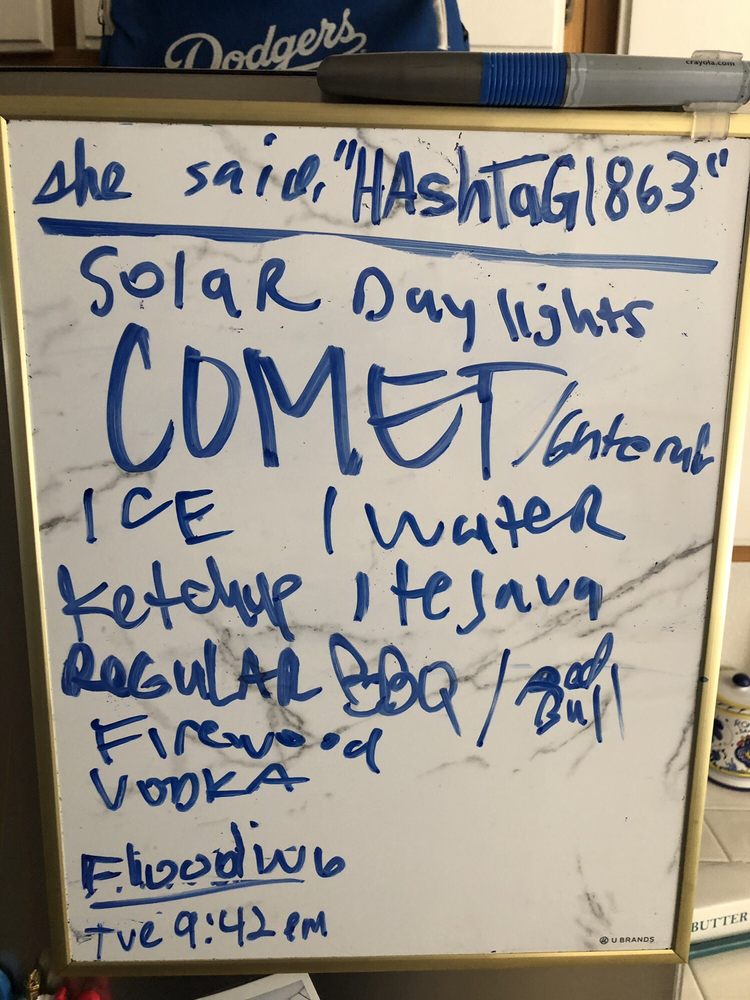 Dodgers
crayola.com
she said, "HAshTaG1863"
SolaR Day lights
COMET /
ICE / water
Ketchup /
REGULAR BBQ / Red Bull
Firewood
VODKA
Flooding
Tue 9:42 PM
U BRANDS
BUTTER